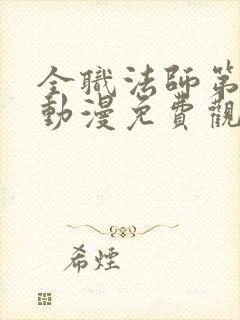 全職法師第
動漫免費觀
希煙